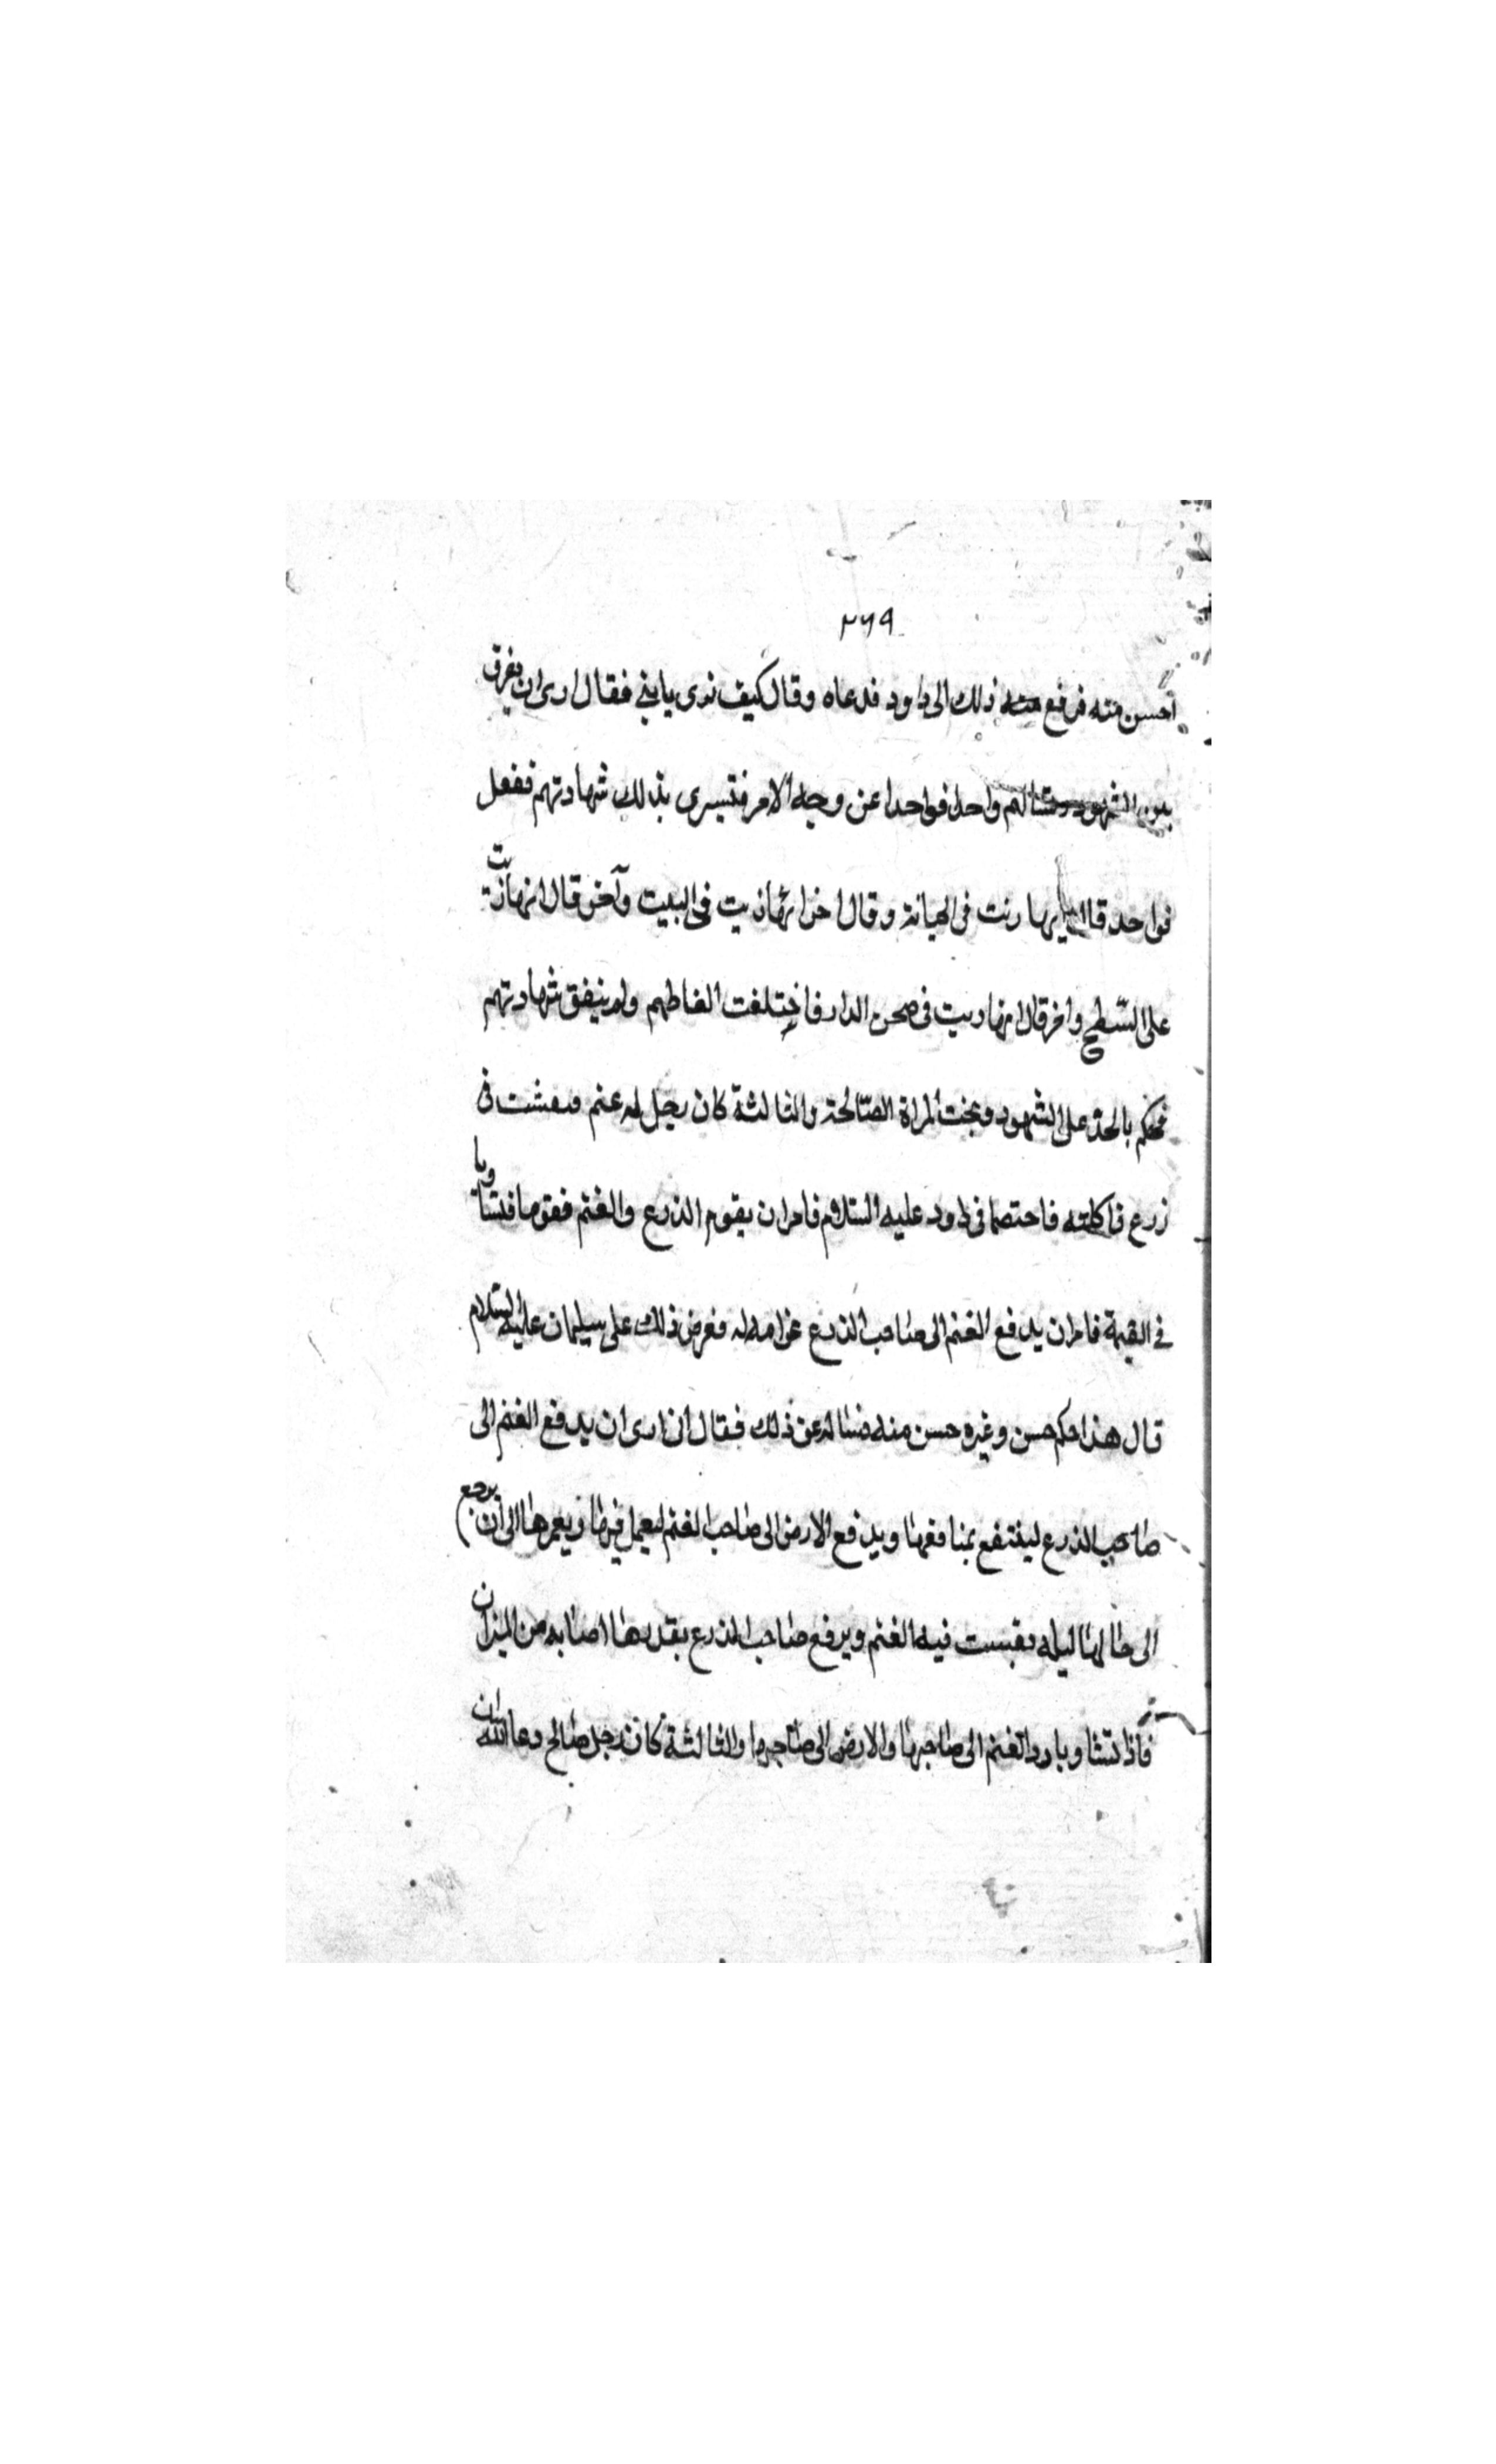 ٢٦٩
احسن منه فرفع منه ذلك الى داود فدعاه وقال كيف ترى يا بني فقال ارى ان يفرق
بين الشهود وتسالهم واحدا فواحدا عن وجه الامر فتسرى بذلك شهادتهم ففعل
فواحد قال انها زنت فى الجبانة وقال اخر انها زنيت فى البيت وآخر قال انها زنت
على السّطح واخر قال انها زنيت فى صحن الدار فاختلفت الفاظهم ولم يتفق شهادتهم
فحكم بالحدّ على الشهود ونجت المراة الصّالحة والثالثة كان رجل له غنم فنفشت فى
زرع فاكلته فاختصما فى داود عليه السّلام فامر ان يقوم الذرع والغنم فقوما فتساويا
فى القيمة فامر ان يدفع الغنم الى صاحب الذرع غرامة له فعرض ذلك على سيلمان عليه السّلام
قال هذا حكم حسن وغيره حسن منه فساله عن ذلك فقال انى ارى ان يدفع الغنم الى
صاحب الذرع لينتفع بمنافعها ويدفع الارض الى صاحب الغنم ليعمل فيها ويعمرها الى ان يرجع
الى حالها ليله نفشت فيه الغنم ويرفع صاحب الذرع بقدر ما اصابه من الميزان
فاذا تساويا ردوا الغنم الى صاحبها والارض الى صاحبها والثالثة كان رجل صالح دعا الله ان